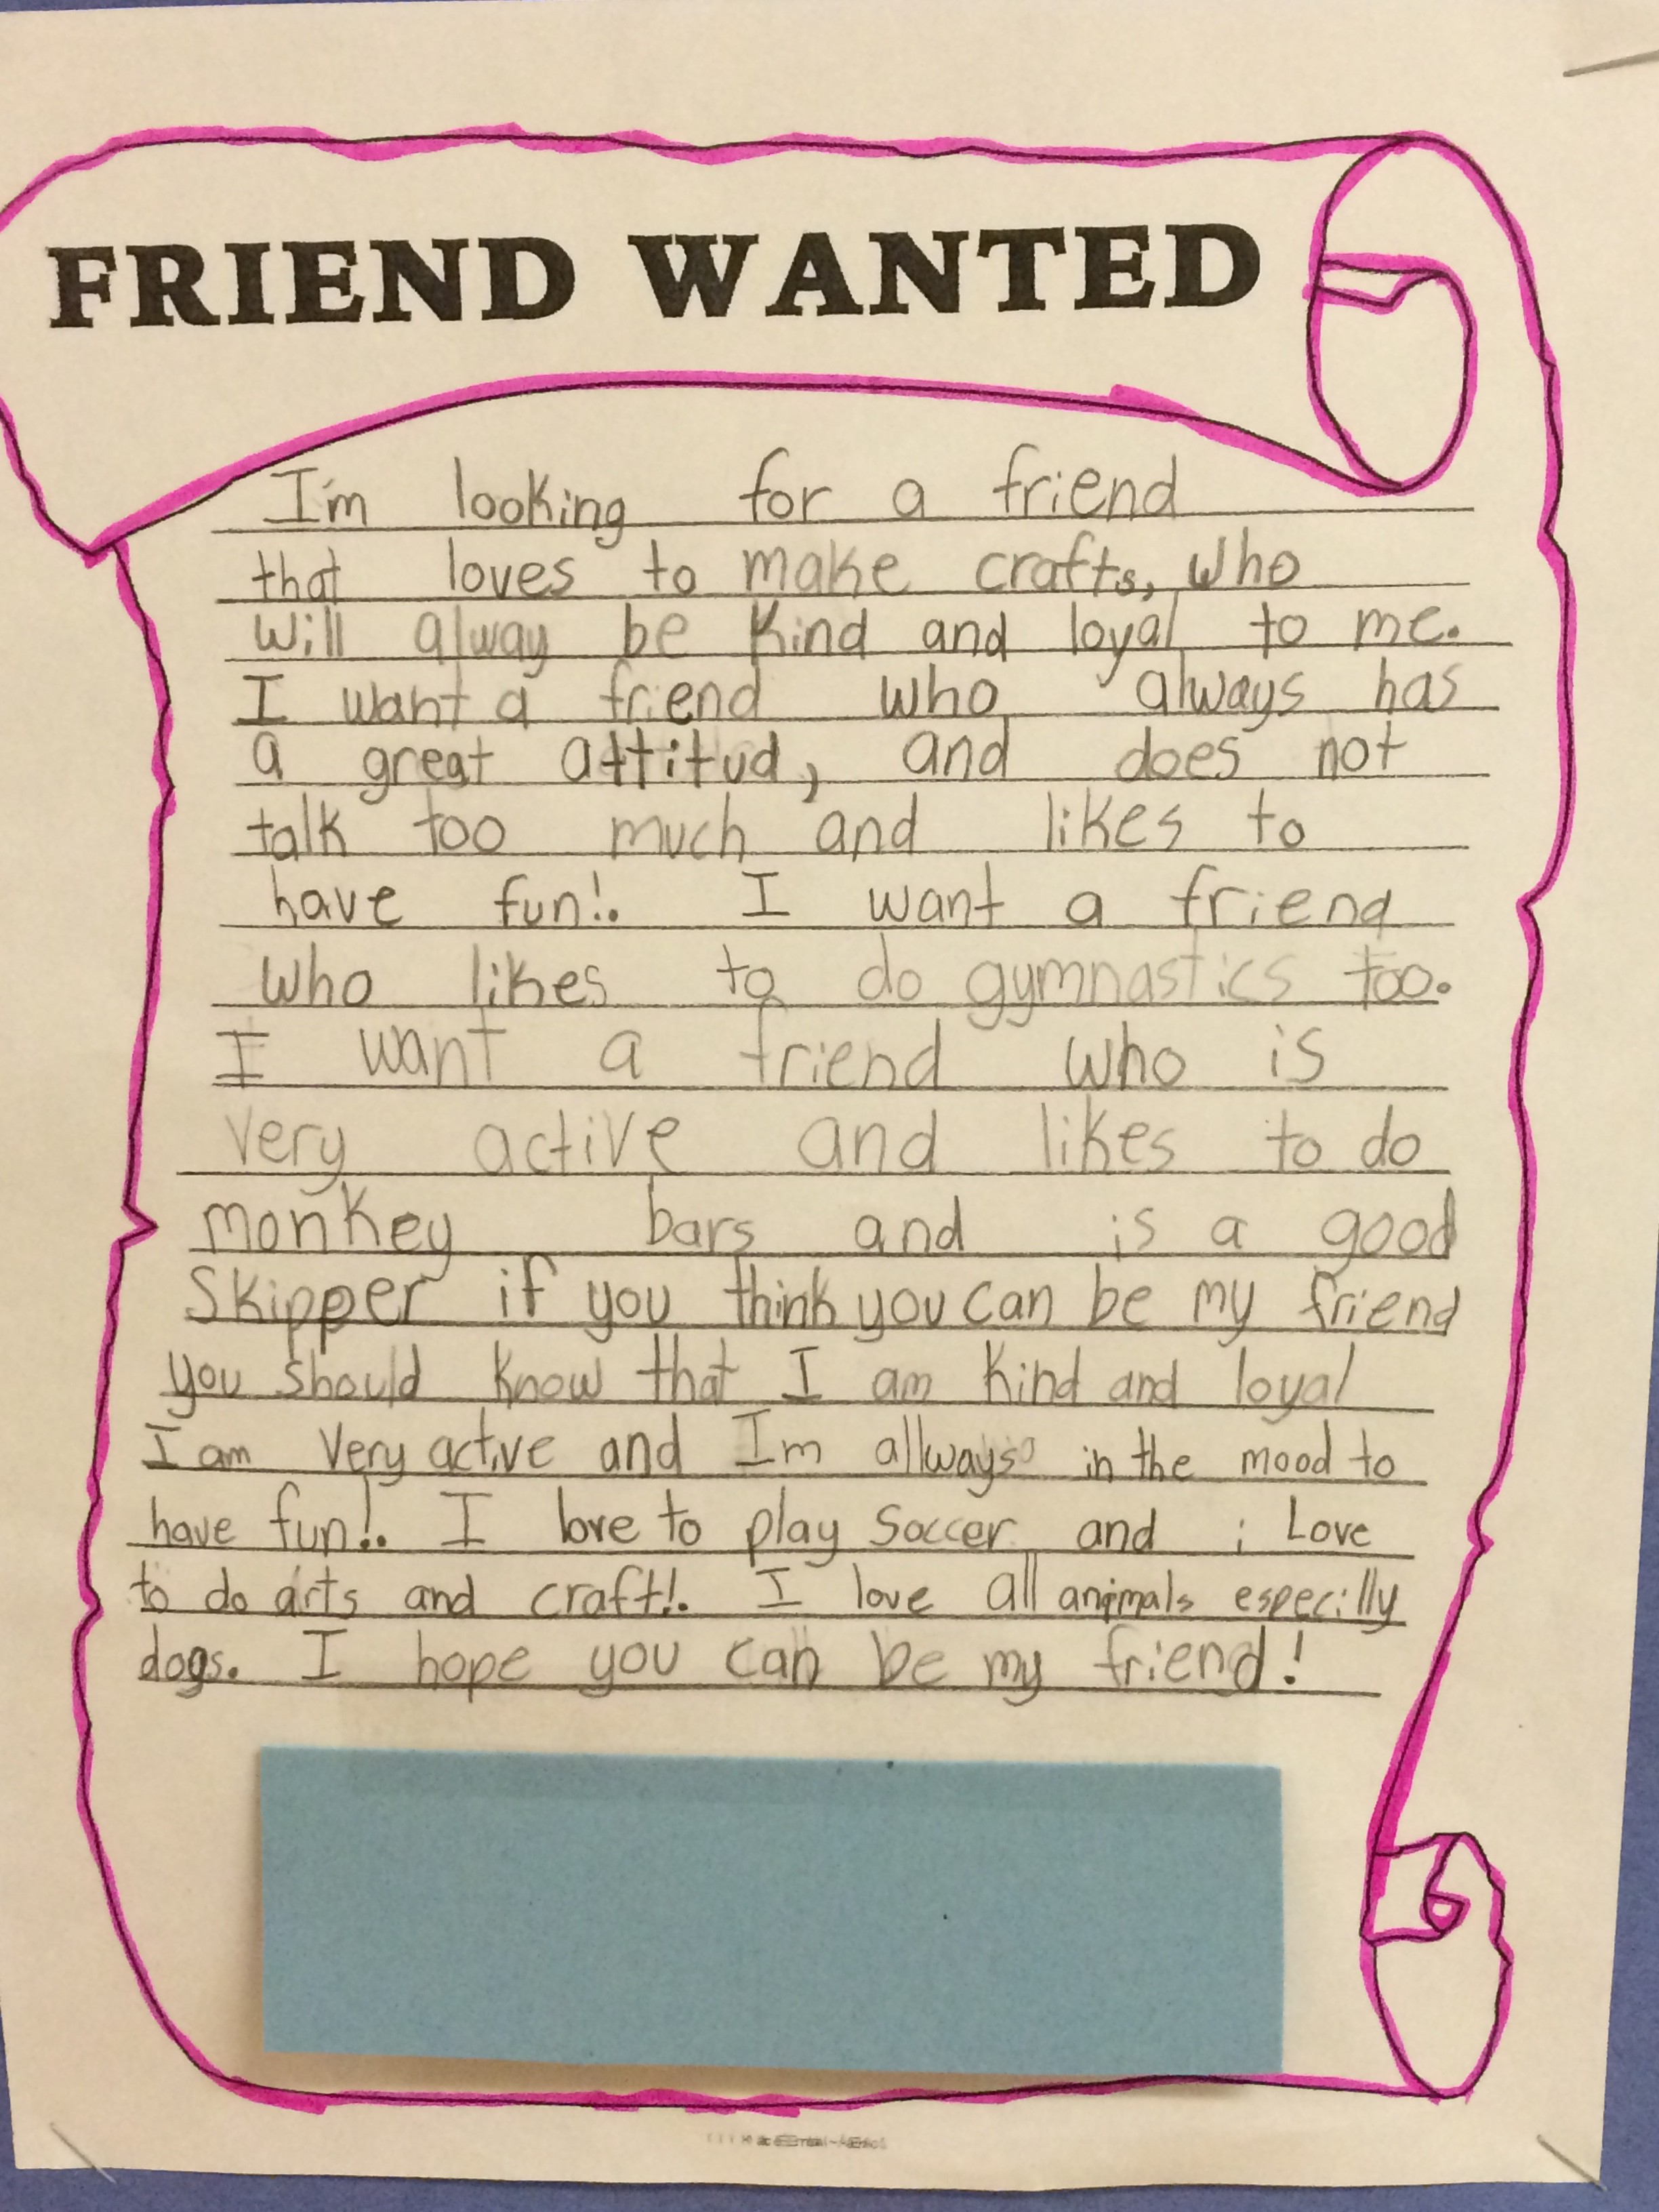 FRIEND WANTED
I'm looking for a friend
that loves to make crafts, who
will alway be kind and loyal to me.
I want a friend who always has
a great attitud, and does not
talk too much and likes to
have fun!. I want a friend
who likes to do gymnastics too.
I want a friend who is
very active and likes to do
monkey bars and is a good
Skipper if you think you can be my friend
you should know that I am kind and loyal
I am very active and I'm allways in the mood to
have fun!. I love to play soccer and i Love
to do arts and craft!. I love all animals especilly
dogs. I hope you can be my friend!